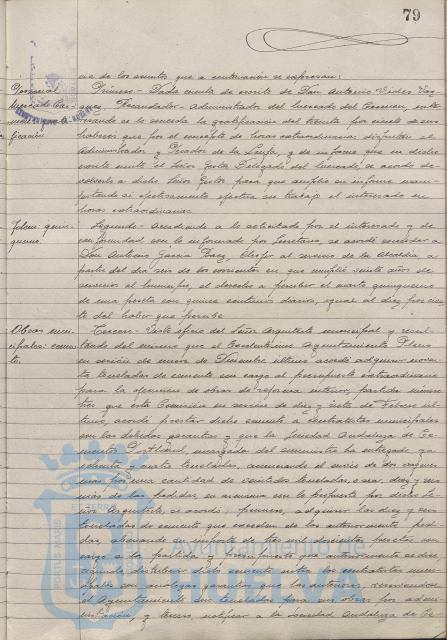 79
cia de los asuntos que a continuación se expresan:
Personal
Mercado Car-
men: 
ficación.
Primero.- Dada cuenta de escrito de Don Antonio Vides Vaz-
quez, Recaudador-Administrador del Mercado del Carmen, inte-
resando se le conceda la gratificación del treinta por ciento de sus
haberes que por el concepto de horas extraordinarias disfrutan el
Administrador y Pesador de la Lonja, y de informe que en dicho
escrito emite el Señor Gestor Delegado del Mercado, se acordó de-
volverlo a dicho Señor Gestor para que amplíe su informe mani-
festando si efectivamente efectúa su trabajo el interesado en
horas extraordinarias.
Idem quin-
quenio.
Segundo.- Accediendo a lo solicitado por el interesado y de
conformidad con lo informado por Secretaría, se acordó conceder a
Don Antonio García Baez, Chofer al servicio de la Alcaldía a
partir del día seis de los corrientes en que cumplió veinte años de
servicios al Municipio, el derecho a percibir el cuarto quinquenio
de una peseta con quince céntimos diarios, igual al diez por cien-
to del haber que percibe.
Obras muni-
cipales: cemen-
to.
Tercero.- Visto oficio del Señor Arquitecto municipal y resul-
tando del mismo que el Excelentísimo Ayuntamiento Pleno
en sesión de nueve de Diciembre último acordó adquirir noven-
ta toneladas de cemento con cargo al presupuesto extraordinario
para la ejecución de obras de reforma interior, partida número
tres que esta Comisión en sesión de diez y siete de Febrero úl-
timo, acordó prestar dicho cemento a contratistas municipales
con las debidas garantías y que la Sociedad Andaluza de Ce-
mentos Portland, encargada del suministro ha entregado ya
ochenta y cuatro toneladas, anunciando el envío de dos vagones
más por una cantidad de veintidós toneladas, o sea, diez y seis
más de las pedidas, en armonía con lo propuesto por dicho Se-
ñor Arquitecto se acordó, primero, adquirir las diez y seis
toneladas de cemento que exceden de las anteriormente pedi-
das, abonando su importe de tres mil doscientas pesetas con
cargo a la partida y
segundo distribuir dicho cemento entre los contratistas muni-
cipales con análogas garantías que las anteriores, reservándose
el Ayuntamiento seis toneladas para sus obras por admi-
nistración, y tercero, notificar a la Sociedad Andaluza de Ce-
Ayuntamiento de
HUELVA
PORTUS MARIS